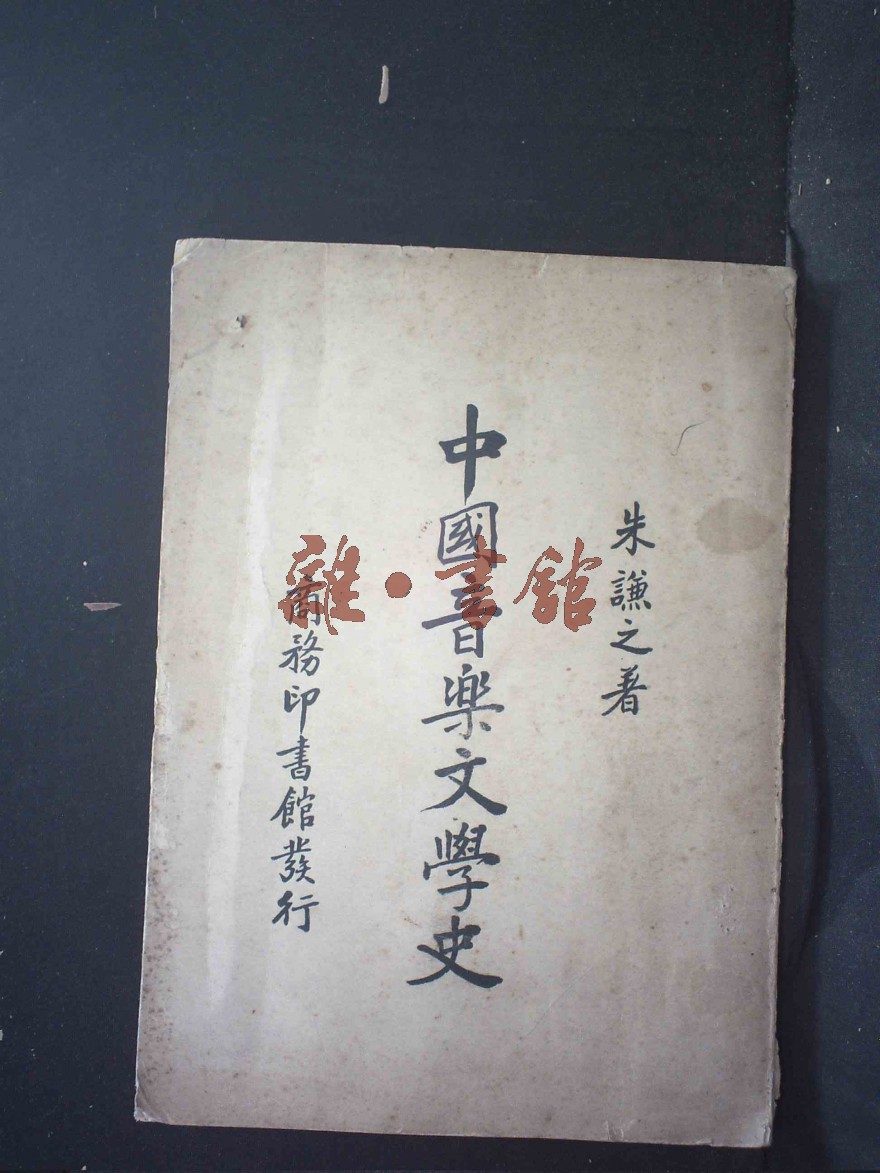 朱謙之著
中國音楽文學史
商務印書館發行
雜·書館